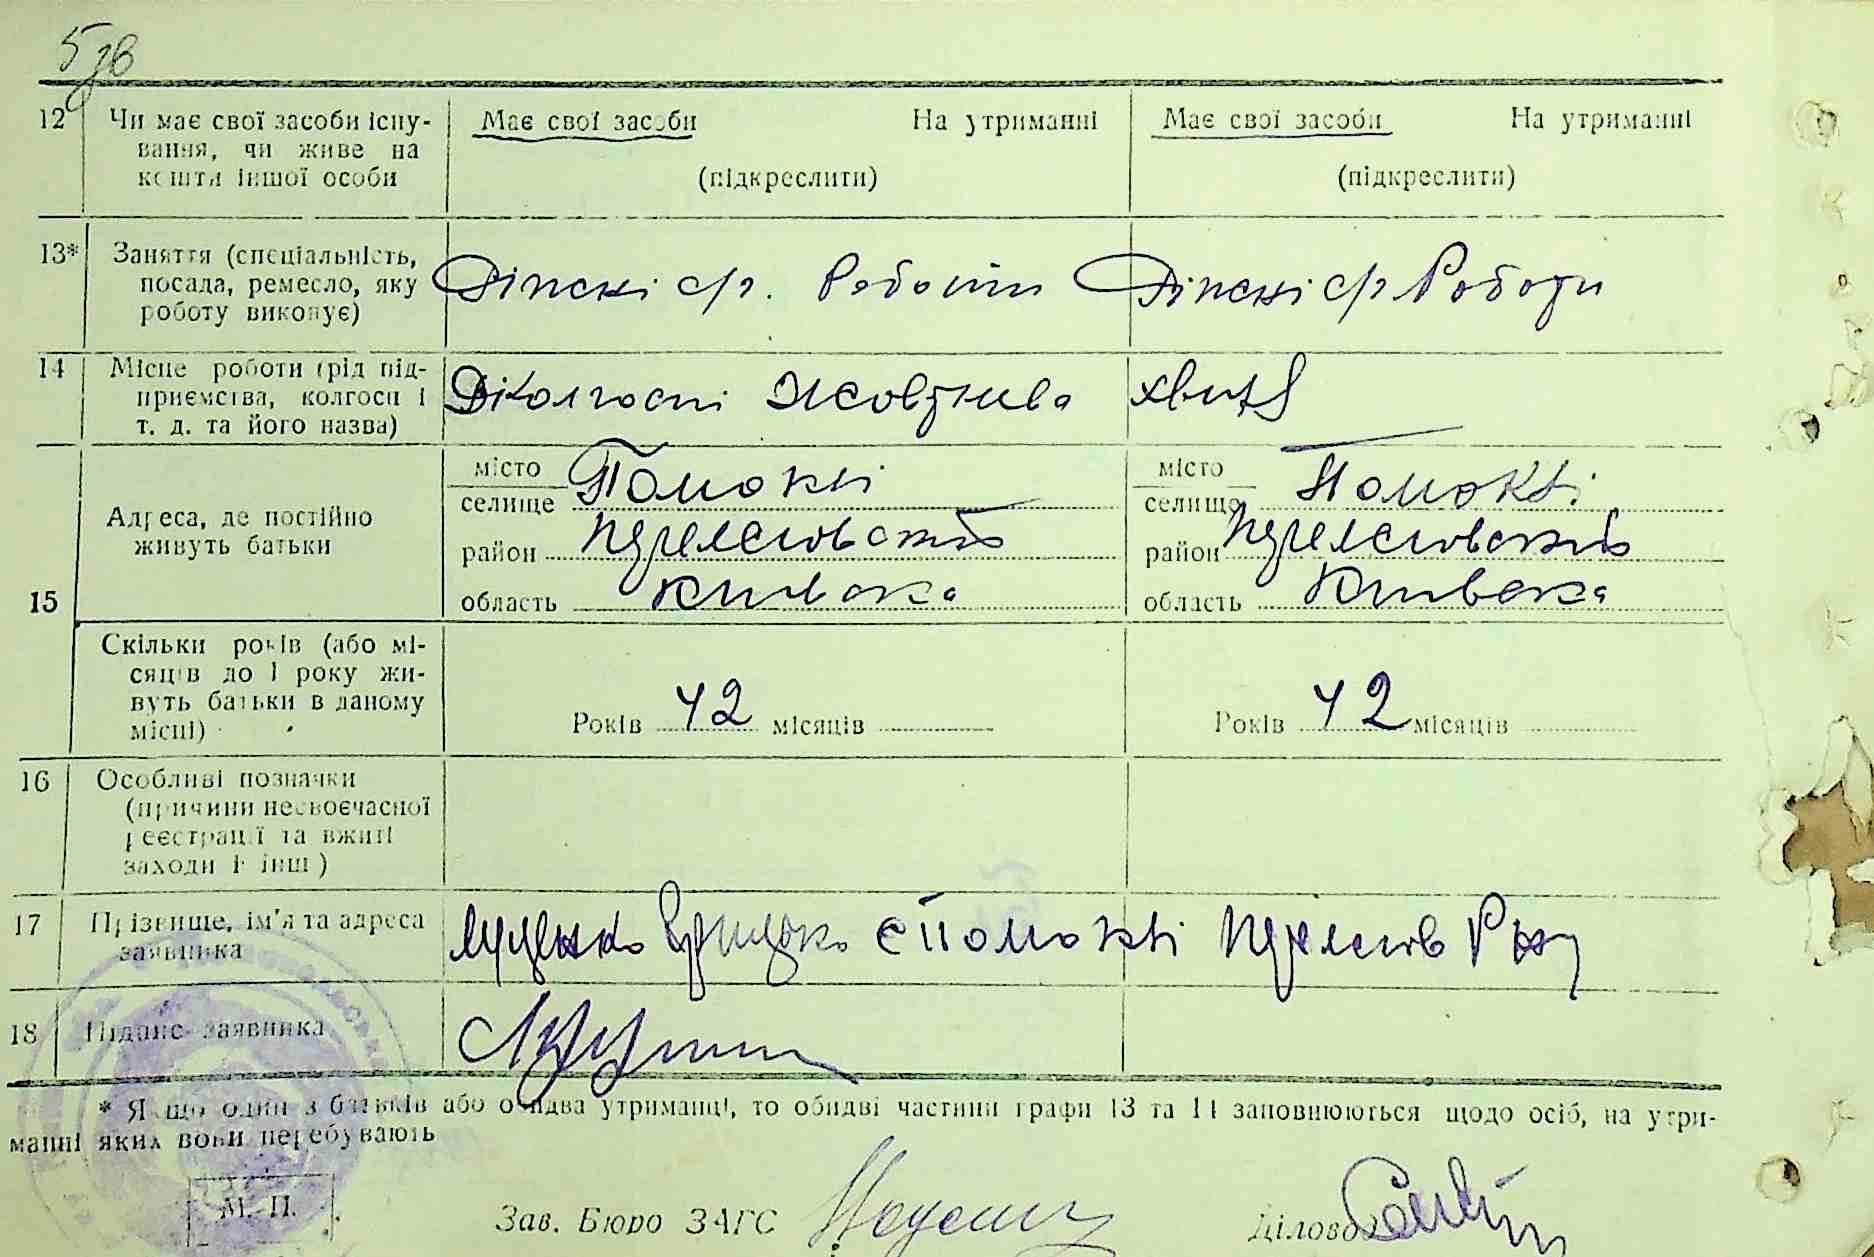 5 зв
12 Чи має свої засоби існу- Має свої засоби На утриманні Має свої засоби На утриманні
вання, чи живе на
кошти іншої особи (підкреслити) (підкреслити)
13* Заняття (спеціальність,
посада, ремесло, яку Фіпскі с/г. Роботи Фіпскі с/г Роботи
роботу виконує)
14 Місце роботи (рід під-
приємства, колгосп і Вколгоспі Жовтнева хвиля
т. д. та його назва)
15 Адреса, де постійно
живуть батьки
місто Помоклі місто Помоклі
селище селище
район район
область Киівска область Киівска
Скільки років (або мі-
сяців до 1 року жи-
вуть батьки в даному
місці) Років 42 місяців Років 42 місяців
16 Особливі позначки
(причини несвоєчасної
реєстрації та вжиті
заходи й інш)
17 Прізвище, ім'я та адреса Луценко Грицько с Помоклі
заявника
18 Підпис заявника
* Якщо один з батьків або обидва утриманці, то обидві частини графи 13 та 14 заповнюються щодо осіб, на утри-
манні яких вони перебувають
М. П.
Зав. Бюро ЗАГС Діловод